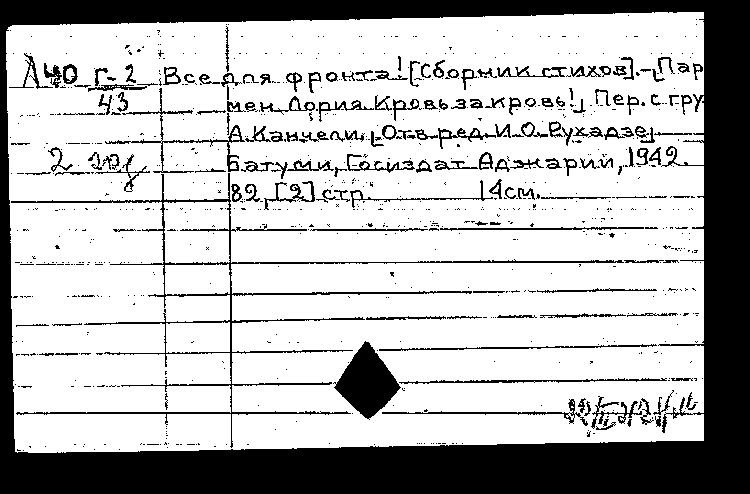 Л40 Г-2 Все для фронта! [Сборник стихов].-[Пар
43 мен Лория. Кровь за кровь!]. Пер. с гру
А. Канчели. [Отв. ред. И.О. Рухадзе].
2 экз Батуми, Госиздат Аджарии, 1942.
82, [2] стр. 14см.